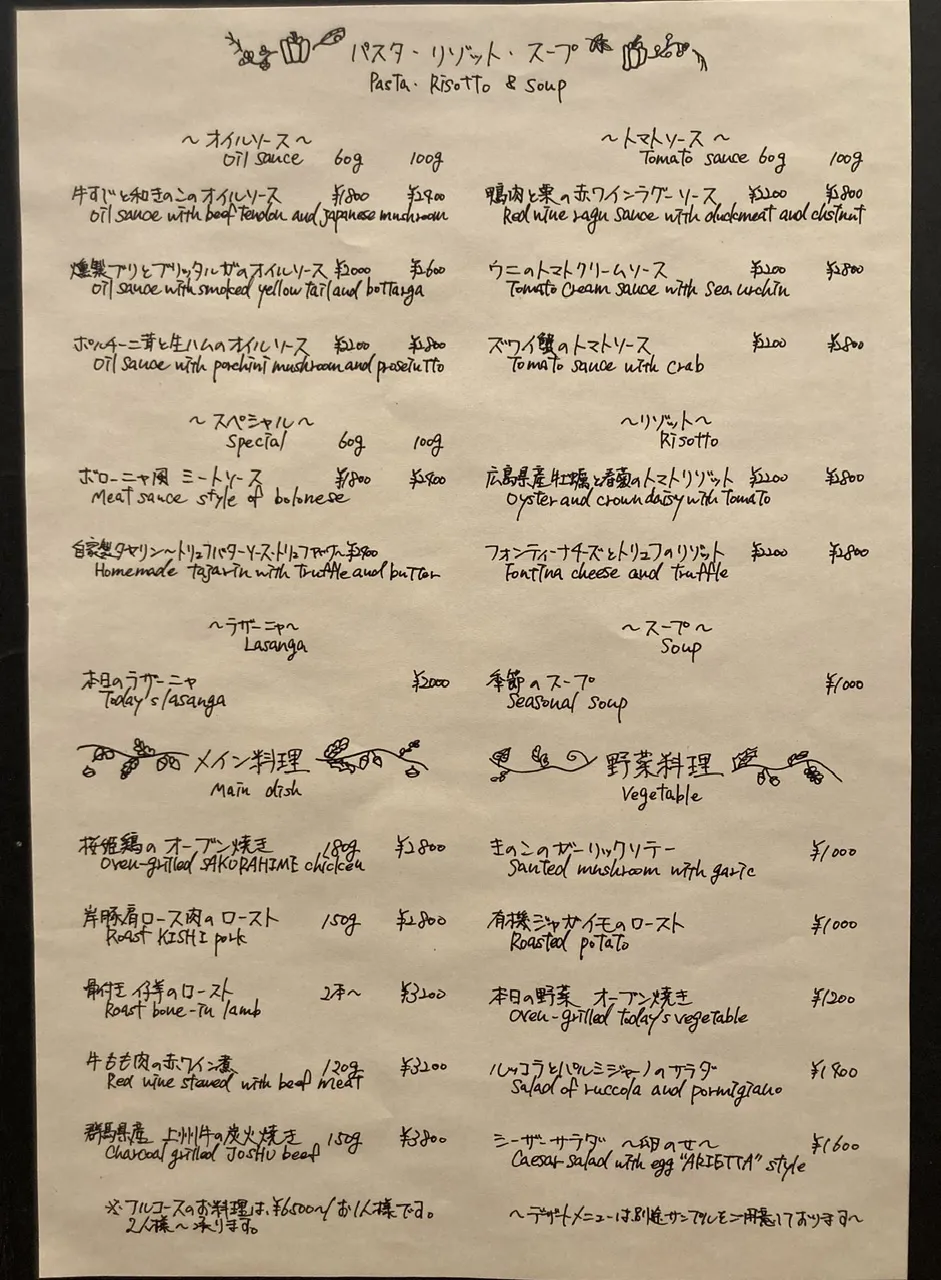 パスタ・リゾット・スープ
Pasta・Risotto & Soup
〜オイルソース〜
Oil sauce 60g 100g
牛すじと和きのこのオイルソース ¥1800 ¥2400
Oil sauce with beef tendon and japanese mushroom
燻製ブリとブリッタルガのオイルソース ¥2000 ¥2600
Oil sauce with smoked yellow tail and bottarga
ポルチーニ茸と生ハムのオイルソース ¥2200 ¥2800
Oil sauce with porchini mushroom and prosciutto
〜スペシャル〜
Special 60g 100g
ボローニャ風 ミートソース ¥1800 ¥2400
Meat sauce style of bolonese
自家製タヤリン〜トリュフバターソース・トリュフ ¥2900
Homemade tajarin with truffle and butter
〜ラザーニャ〜
Lasanga
本日のラザーニャ ¥2000
Today's lasanga
〜トマトソース〜
Tomato sauce 60g 100g
鴨肉と栗の赤ワインラグーソース ¥2200 ¥2800
Red wine ragu sauce with duckmeat and chstnut
ウニのトマトクリームソース ¥2200 ¥2800
Tomato cream sauce with sea urchin
ズワイ蟹のトマトソース ¥2200 ¥2800
Tomato sauce with crab
〜リゾット〜
Risotto
広島県産牡蠣と春菊のトマトリゾット ¥2200 ¥2800
Oyster and crown daisy with tomato
フォンティーナチーズとトリュフのリゾット ¥2200 ¥2800
Fontina cheese and truffle
〜スープ〜
Soup
季節のスープ ¥1000
Seasonal soup
メイン料理
Main dish
桜姫鶏のオーブン焼き 180g ¥2800
Oven-grilled SAKURAHIME chicken
岸豚肩ロース肉のロースト 150g ¥2800
Roast KISHI pork
骨付き仔羊のロースト 2本〜 ¥3200
Roast bone-in lamb
牛もも肉の赤ワイン煮 120g ¥3200
Red wine stewed with beef meat
群馬県産 上州牛の炭火焼き 150g ¥3800
Charcoal grilled JOSHU beef
※フルコースのお料理は、¥6500〜/お1人様です。
2人様〜承ります。
野菜料理
Vegetable
きのこのガーリックソテー ¥1000
Sauted mushroom with garic
有機ジャガイモのロースト ¥1000
Roasted potato
本日の野菜 オーブン焼き ¥1200
Oven-grilled today's vegetable
ルッコラとパルミジャーノのサラダ ¥1400
Salad of ruccola and pormigiano
シーザーサラダ 〜卵のせ〜 ¥1600
Caesar salad with egg "ARIETTA" style
〜デザートメニューは別途サンプルをご用意しております〜